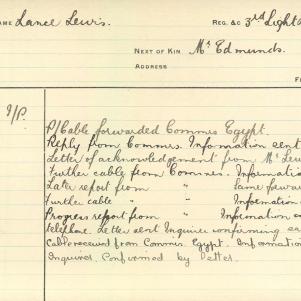 AME Lance Lewis. REG. &C 3rd Light
NEXT OF KIN Mr. Edmunds.
ADDRESS
F
I/P.
P/Cable forwarded Commrs Egypt.
Reply from Commrs. Information sent
Letter of acknowledgement from Mr Lew
Further cable from Commrs. Informatio
Later report from " Same forwar
Further cable " Information
Progress report from " Information
telephone. Letter sent Inquirer confirming
Cable received from Commrs. Egypt. Informatio
Inquirer. Confirmed by letter.